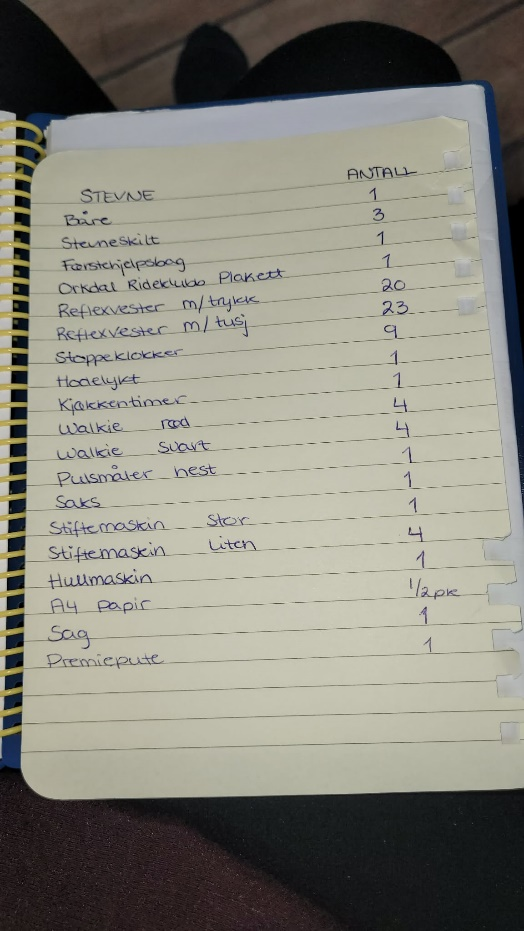 STEVNE ANTALL
Båre 1
Stevneskilt 3
Førstehjelpsbag 1
Orkdal Rideklubb Plakett 1
Reflexvester m/trykk 20
Reflexvester m/tusj 23
Stoppeklokker 9
Hodelykt 1
Kjøkkentimer 1
Walkie rød 4
Walkie svart 4
Pulsmåler hest 1
Saks 1
Stiftemaskin Stor 1
Stiftemaskin Liten 4
Hullmaskin 1
A4 papir 1/2 pk
Sag 1
Premiepute 1